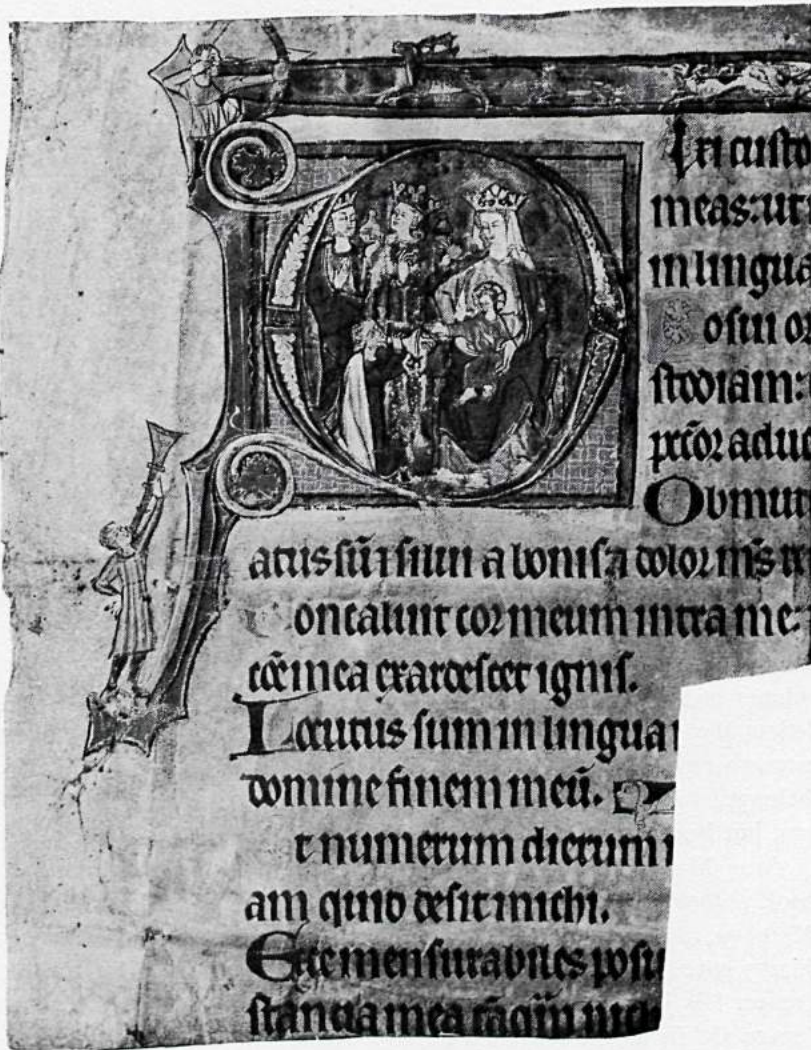 Dixi custo
meas: ut
in lingua
Posui or
stodiam:
pccõr adue
Obmut
atus sũ ⁊ silui a bonis ⁊ dolor m̃s re
Concaluit cor meum intra me:
cõe mea exardescet ignis.
Locutus sum in lingua
domine finem meũ.
Et numerum dierum
am quid desit michi.
Ecce mensurabiles posu
stancia mea tãqm̃ nich